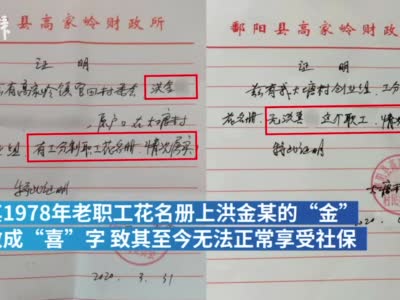 县高家岭财政所
证明
有高家岭镇官田村委会
原户口在大塘村
组 有工分制职工花名册 情况属实
特此证明
鄱阳县高家岭财政所
证明
我大塘村创业组 工分
花名册 无洪 这个职工 情况
特此证明
2020.
1978年老职工花名册上洪金某的“金”
成“喜”字 致其至今无法正常享受社保